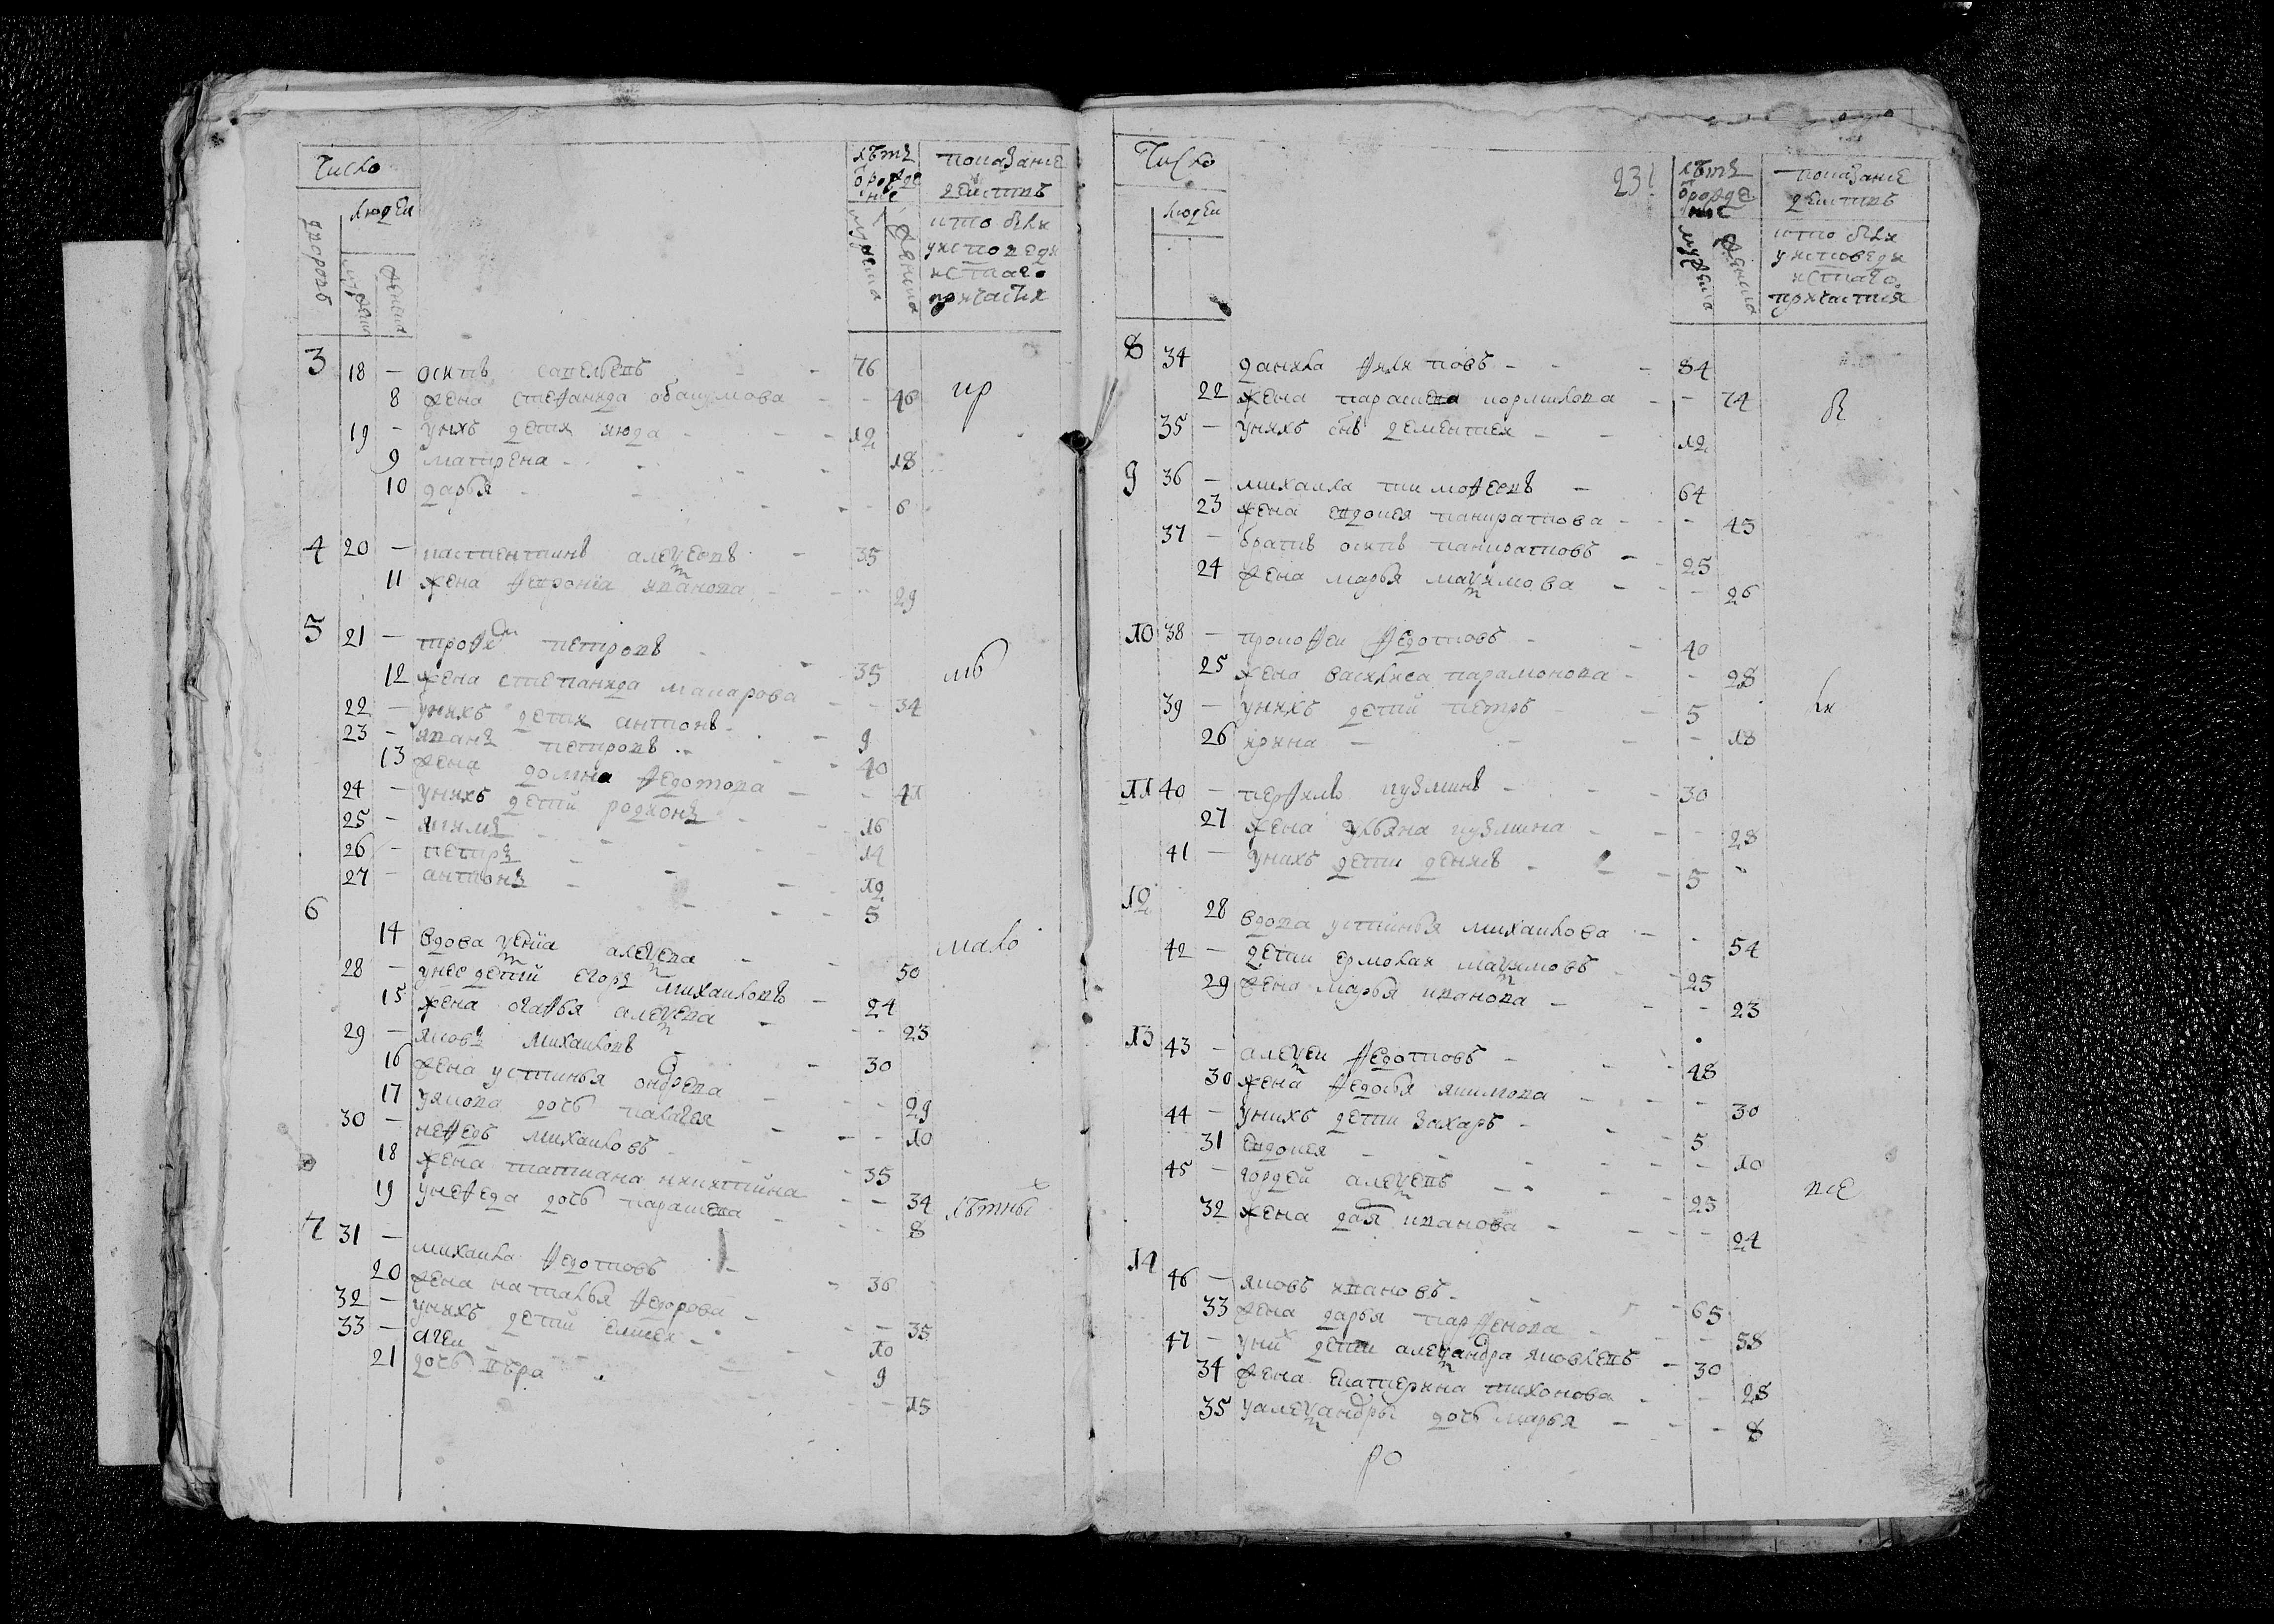 Число
людеи
дворовъ
мужеска
женска
лѣтъ
ѿрожде
ние
мужеска
женска
показание
действъ
ито были
уисповеди
истаго
причастия
3 18 - осипъ савельевъ - 76
8 жена стефанида абакумова - - 46
пр
19 - унихъ дети июда - - - 12
9 матрена - - - - 18
10 дарья - - - - 6
4 20 - кастентинъ алексеевъ - 35
11 жена феврониа иванова - - - 29
5 21 - трофеи петровъ - - 35
мъ
12 жена степанида макарова - - 34
22 - унихъ дети антонъ - - 9
23 - иванъ петровъ - - - 40
13 жена домна федотова - - 41
24 - унихъ детии родионъ - - 16
25 - якимъ - - - - 14
26 - петръ - - - - 12
27 - антонъ - - - - 5
6 14 вдова ксениа алексеева - - 50
мало
28 - унее детии егоръ михаиловъ - 24
15 жена агафья алексеева - - - 23
29 - яковъ михаиловъ - - 30
16 жена устинья андреева - - - 29
17 уякова дочь палагея - - - 10
30 - нефедъ михаиловъ - - 35
18 жена татиана никитина - - 34
лѣтны х
19 унефеда дочь парасковиа - - - 8
7 31 - михаила федотовъ - - 36
20 жена наталья федорова - - - 35
32 - унихъ детии елисеи - - 10
33 - агеи - - - - 9
21 дочь вѣра - - - - 15
Число
людеи
231
лѣтъ
ѿрожде
ние
мужеска
женска
показание
действъ
ито были
уисповеди
истаго
причастия
8 34 данила филиповъ - - - 84
22 жена парасковиа кормилова - - 74
35 - унихъ сынъ дементеи - - 12
9 36 - михаила тимофеевъ - 64
23 жена евдокея панкратова - - 45
37 - братъ осипъ панкратовъ - - 25
24 жена марья максимова - - - 26
10 38 - прокофеи федотовъ - - 40
25 жена василиса парамонова - - 28
ли
39 - унихъ детии петръ - - 5
26 ирина - - - - 18
11 40 - перфилъ кузминъ - - - 30
27 жена ульяна кузмина - - - 28
41 - унихъ дети денисъ - - - 5
12 28 вдова устинья михаилова - - 54
42 - дети ермолаи максимовъ - - 25
29 жена марья иванова - - - 23
13 43 - алексеи федотовъ - - - 48
30 жена федосья якимова - - - 30
44 - унихъ дети захаръ - - - 5
31 евдокея - - - - - 10
45 - гордей алексеевъ - - - 25
все
32 жена дарья иванова - - - - 24
14 46 - яковъ ивановъ - - - 65
33 жена дарья парфенова - - - 58
47 - уних дети александра яковлевъ - 30
34 жена екатерина тихонова - - 28
35 уалександры дочь марья - - - 8
ро